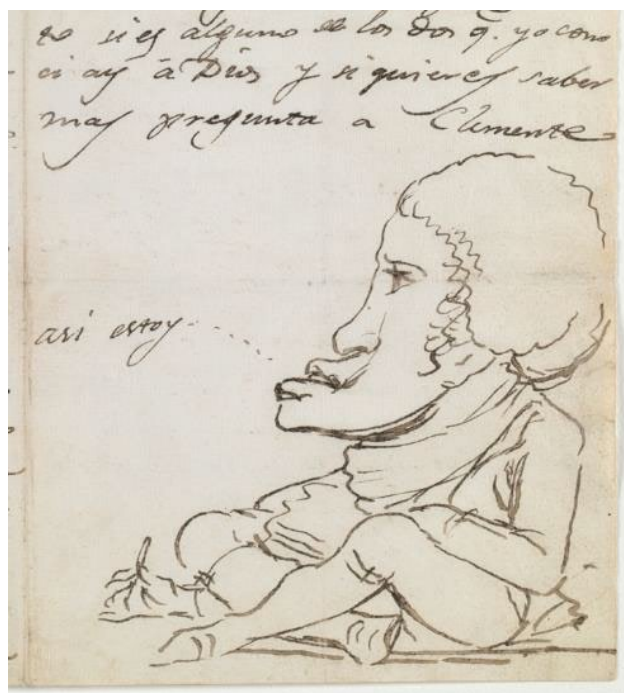 si es alguno de los dos q. yo cono
ci ay á Dios y si quieres saber
mas pregunta a Clemente
asi estoy